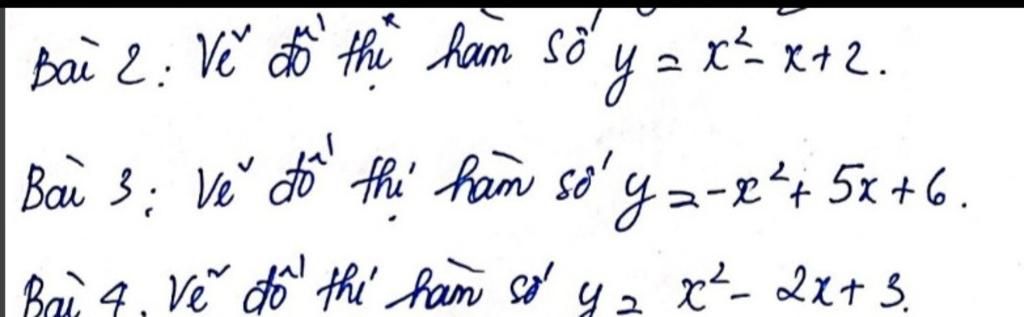 Bài 2: Vẽ đồ thị hàm số y = x² - x + 2.
Bài 3: Vẽ đồ thị hàm số y = -x² + 5x + 6.
Bài 4. Vẽ đồ thị hàm số y = x² - 2x + 3.